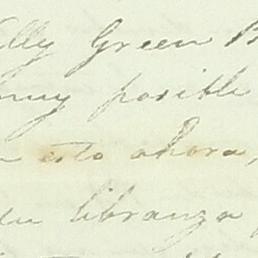 Green B
muy posible
esto ahora,
su libranza